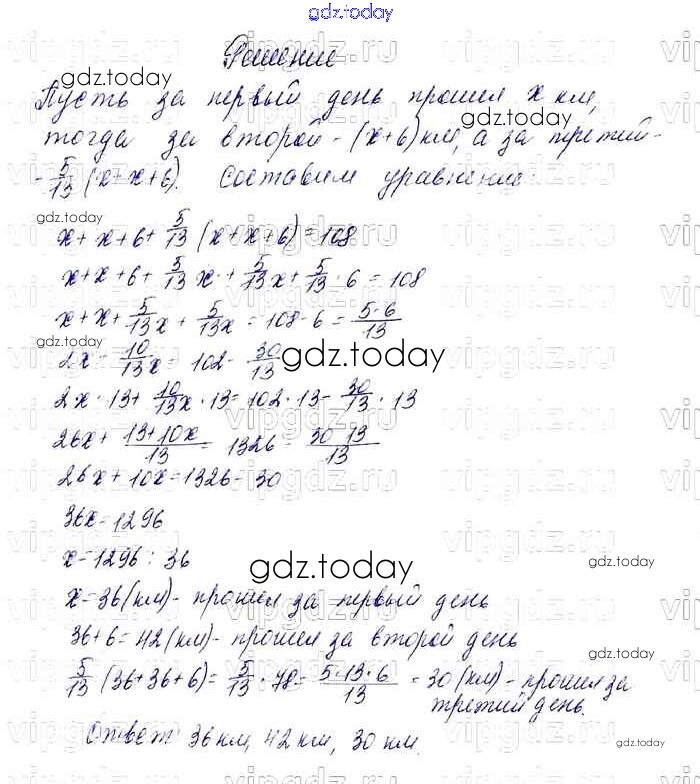 gdz.today
Решение
Пусть за первый день прошли x км,
тогда за второй - (x+6) км, а за третий -
- 5/13 (x+x+6). Составим уравнение:
x + x + 6 + 5/13 (x+x+6) = 108
x+x+6+ 5/13 x + 5/13 x + 5/13 · 6 = 108
x + x + 5/13 x + 5/13 x = 108 - 6 = 5·6/13
2x - 10/13 x = 102 - 30/13
2x · 13 + 10/13 x · 13 = 102 · 13 - 30/13 · 13
26x + 13+10x/13 = 1326 - 30 13/13
26x + 10x = 1326 - 30
36x = 1296
x = 1296 : 36
x = 36 (км) - прошли за первый день
36+6 = 42 (км) - прошли за второй день
5/13 (36+36+6) = 5/13 · 78 = 5·13·6/13 = 30 (км) - прошли за
третий день.
Ответ 36 км, 42 км, 30 км.
gdz.today
gdz.today
gdz.today
gdz.today
gdz.today
gdz.today
gdz.today
gdz.today
gdz.today
vipgdz.ru